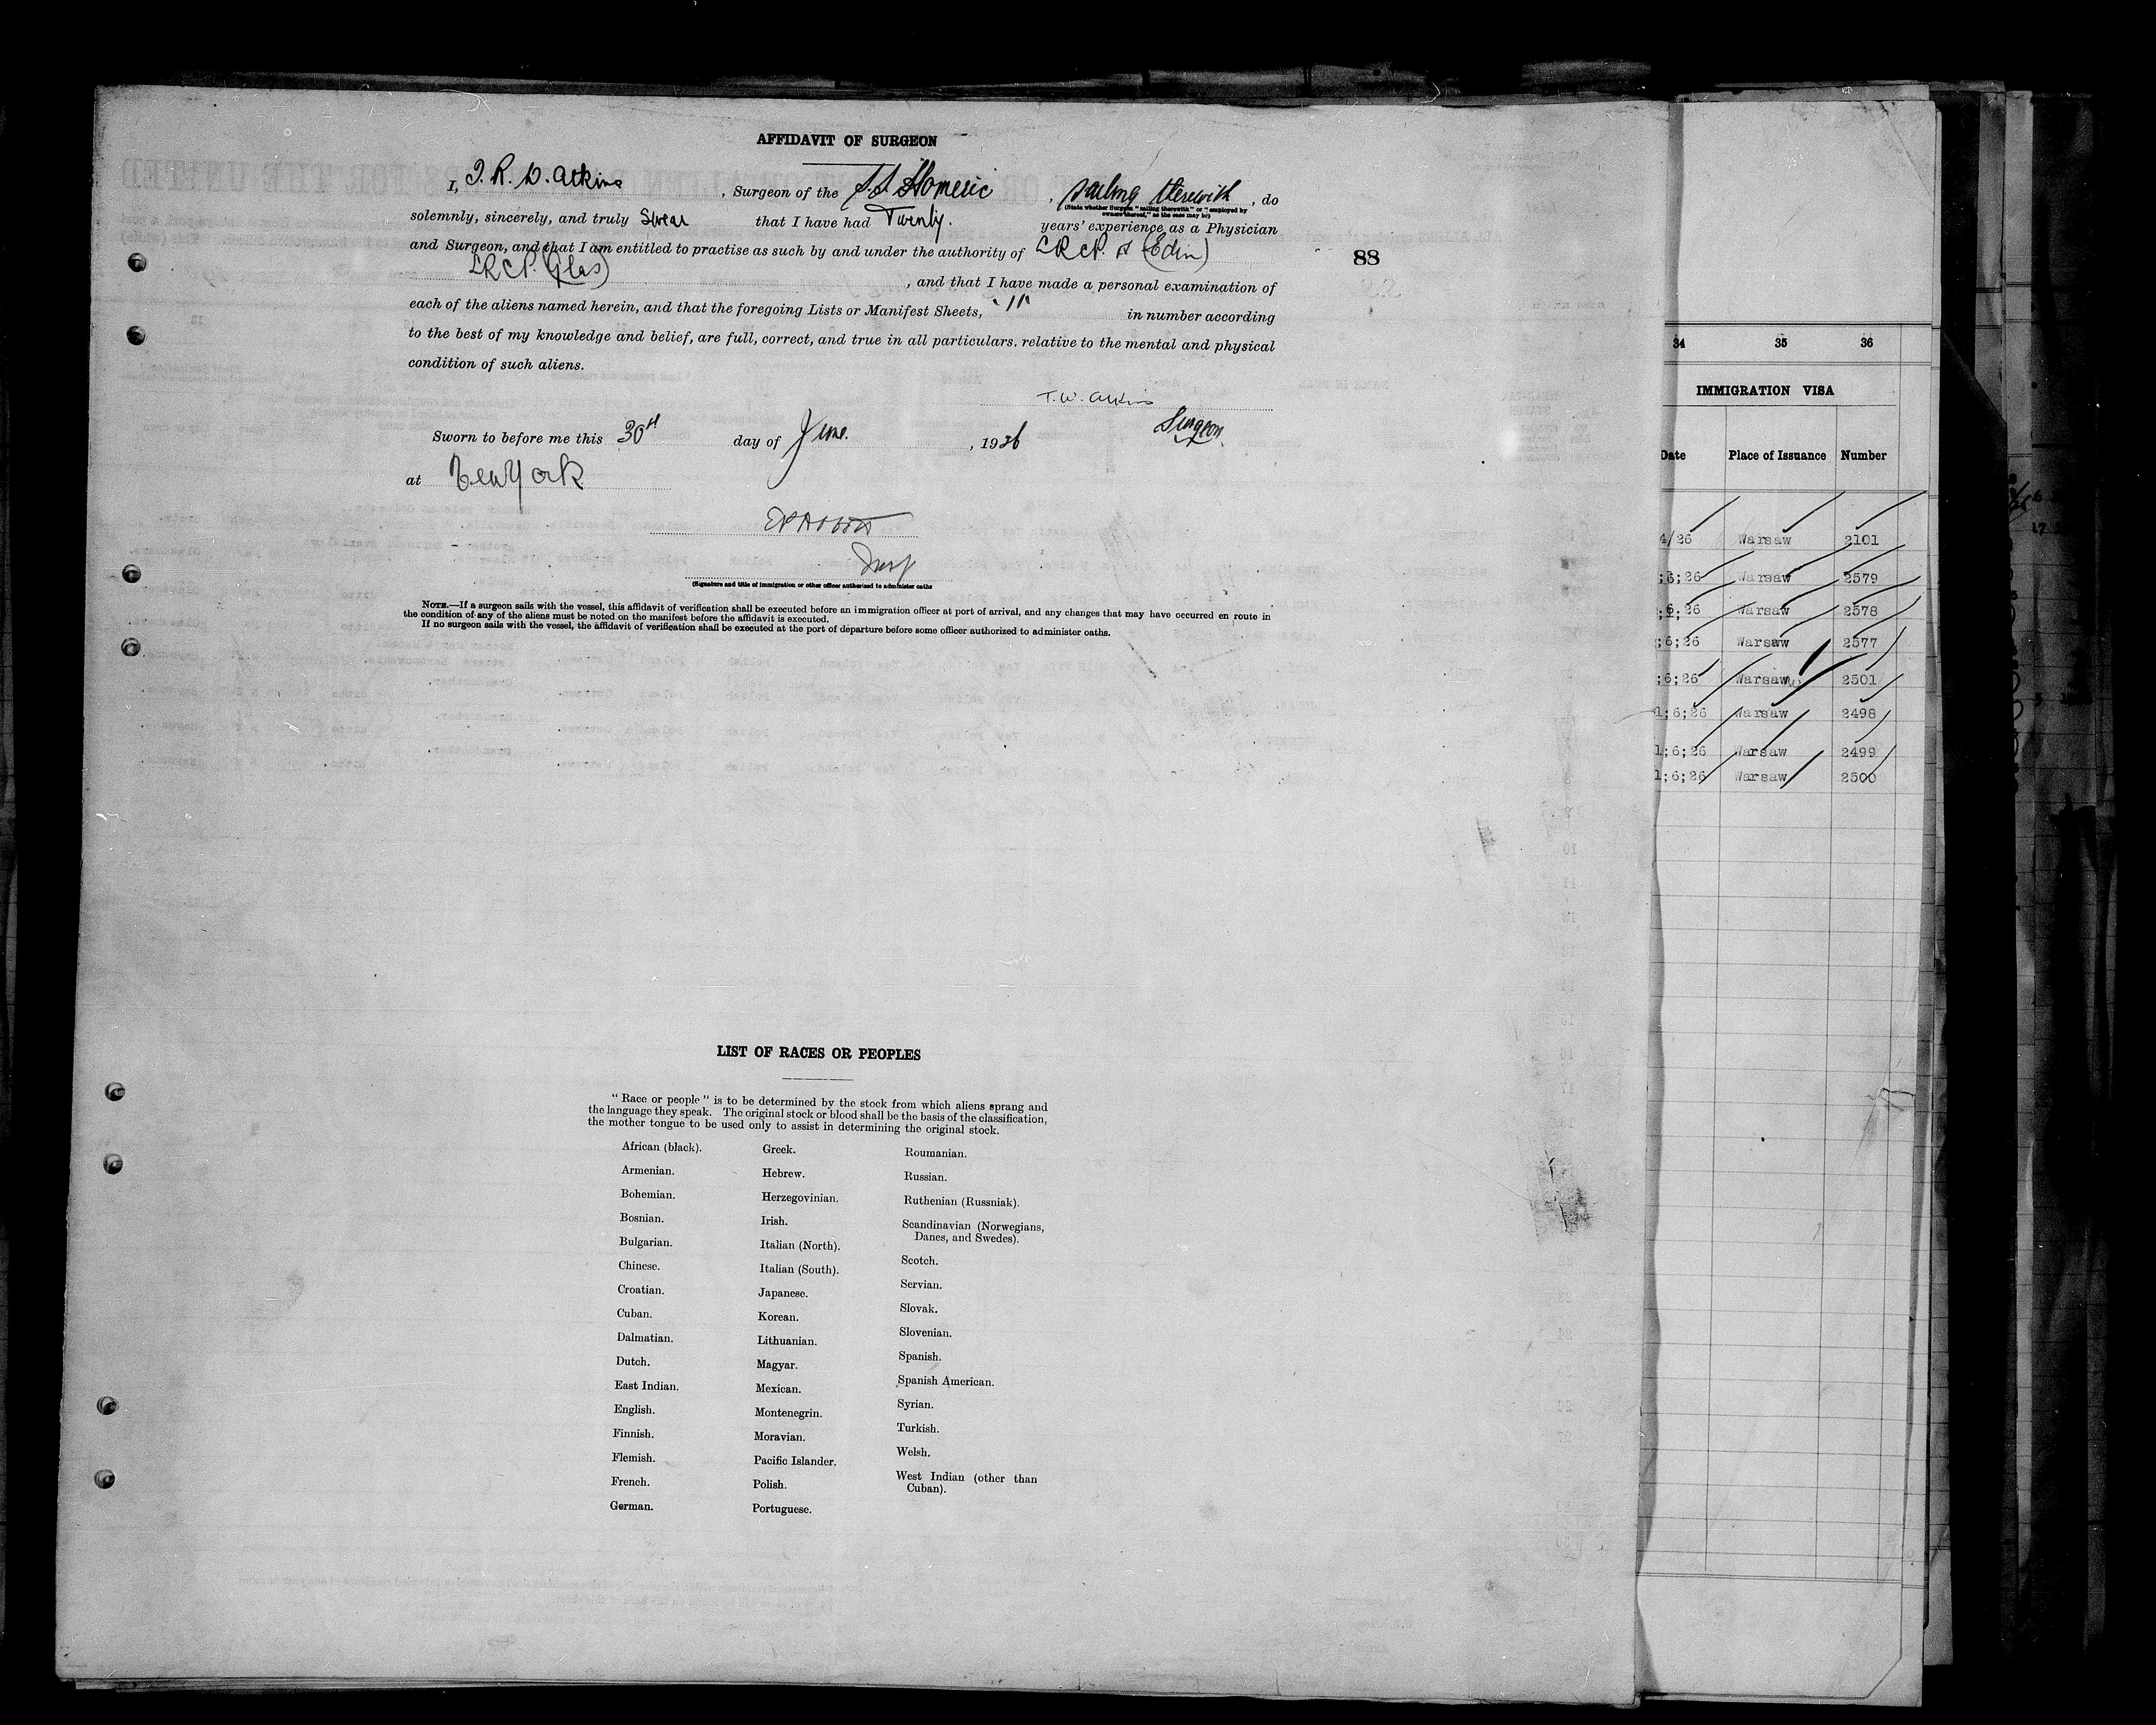 AFFIDAVIT OF SURGEON
I, T. R. W. Atkins, Surgeon of the S.S. Homeric, Sailing therewith, do
(State whether Surgeon "sailing therewith" or "employed by
owners thereof," as the case may be)
solemnly, sincerely, and truly Swear that I have had Twenty. years' experience as a Physician
and Surgeon, and that I am entitled to practise as such by and under the authority of LRCP. S (Edin)
LRCP. (Glas), and that I have made a personal examination of
88
each of the aliens named herein, and that the foregoing Lists or Manifest Sheets, "11" in number according
to the best of my knowledge and belief, are full, correct, and true in all particulars. relative to the mental and physical
condition of such aliens.
T. W. Atkins
Surgeon.
Sworn to before me this 30th day of June. , 1926
at New York
Insp
(Signature and title of immigration or other officer authorised to administer oaths
NOTE.—If a surgeon sails with the vessel, this affidavit of verification shall be executed before an immigration officer at port of arrival, and any changes that may have occurred en route in
the condition of any of the aliens must be noted on the manifest before the affidavit is executed.
If no surgeon sails with the vessel, the affidavit of verification shall be executed at the port of departure before some officer authorized to administer oaths.
LIST OF RACES OR PEOPLES
"Race or people" is to be determined by the stock from which aliens sprang and
the language they speak. The original stock or blood shall be the basis of the classification,
the mother tongue to be used only to assist in determining the original stock.
African (black).
Armenian.
Bohemian.
Bosnian.
Bulgarian.
Chinese.
Croatian.
Cuban.
Dalmatian.
Dutch.
East Indian.
English.
Finnish.
Flemish.
French.
German.
Greek.
Hebrew.
Herzegovinian.
Irish.
Italian (North).
Italian (South).
Japanese.
Korean.
Lithuanian.
Magyar.
Mexican.
Montenegrin.
Moravian.
Pacific Islander.
Polish.
Portuguese.
Roumanian.
Russian.
Ruthenian (Russniak).
Scandinavian (Norwegians,
Danes, and Swedes).
Scotch.
Servian.
Slovak.
Slovenian.
Spanish.
Spanish American.
Syrian.
Turkish.
Welsh.
West Indian (other than
Cuban).
34 35 36
IMMIGRATION VISA
Date Place of Issuance Number
4/26 Warsaw 2101
;6;26 Warsaw 2579
;6;26 Warsaw 2578
;6;26 Warsaw 2577
;6;26 Warsaw 2501
1;6;26 Warsaw 2498
1;6;26 Warsaw 2499
1;6;26 Warsaw 2500